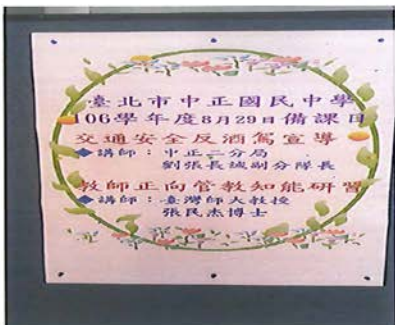 臺北市中正國民中學
106學年度8月29日備課日
交通安全反酒駕宣導
◆講師：中正二分局
劉張長誠副分隊長
教師正向管教知能研習
◆講師：臺灣師大教授
張民杰博士